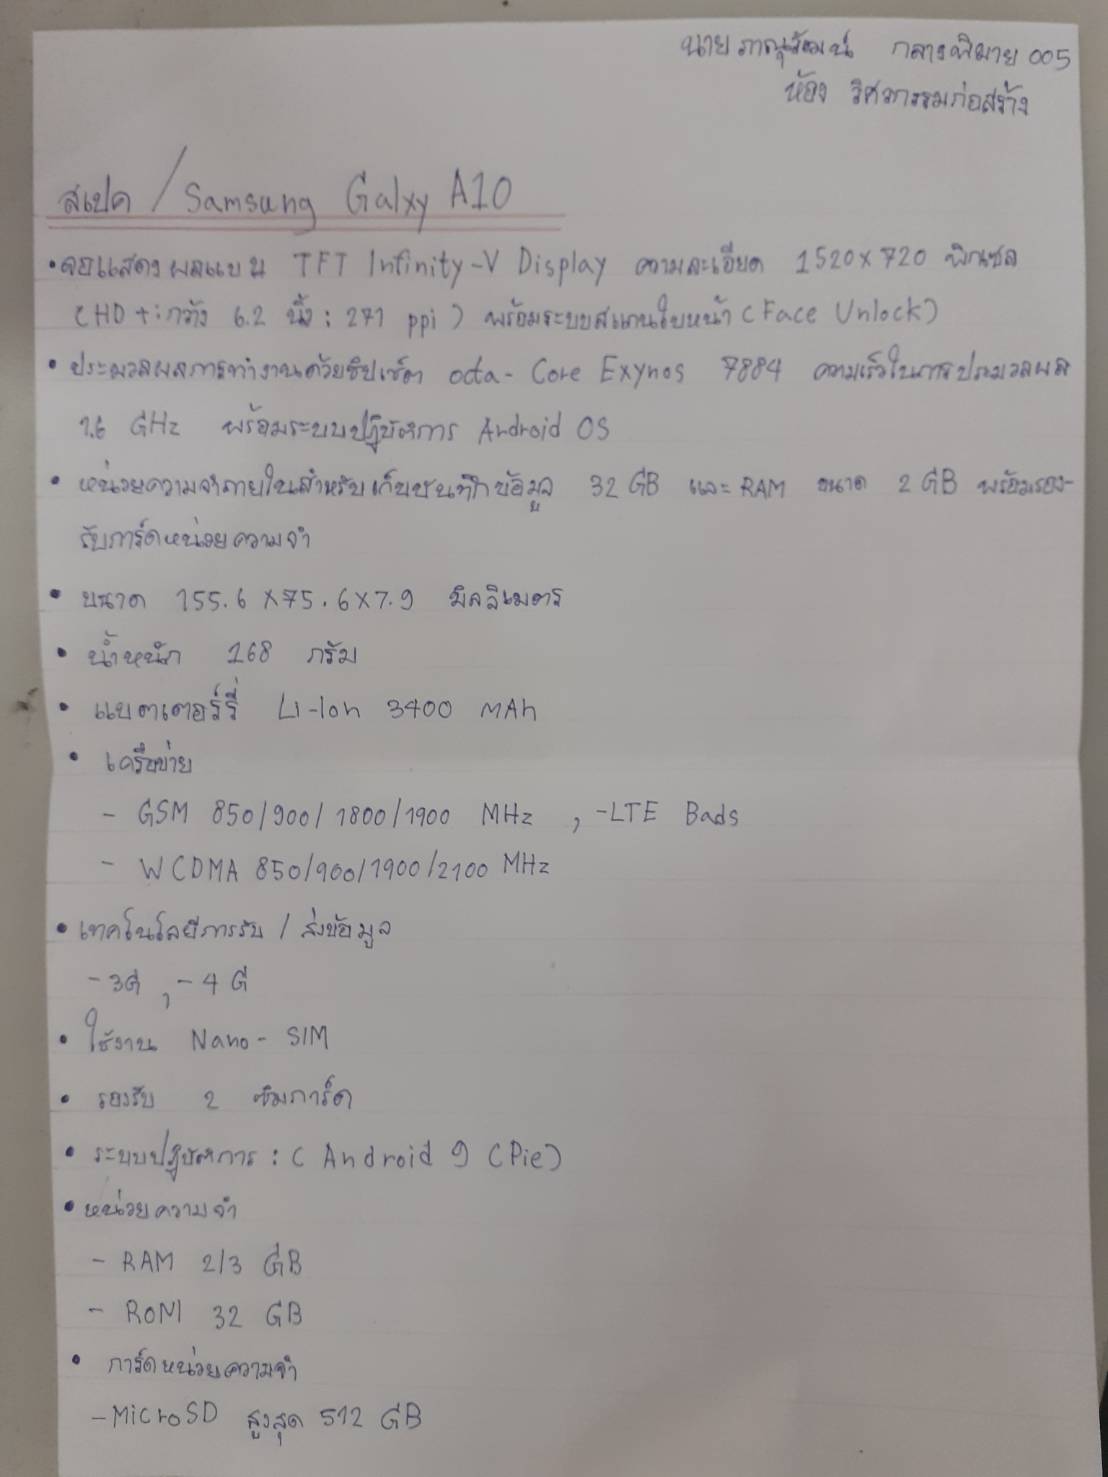 นายภาณุวัฒน์ กลางพิมาย 005
ห้อง วิศวกรรมก่อสร้าง
สเปค / Samsung Galxy A10
• จอแสดงผลแบบ TFT Infinity-V Display ความละเอียด 1520x720 พิกเซล
(HD+: กว้าง 6.2 นิ้ว: 271 ppi) พร้อมระบบสแกนใบหน้า (Face Unlock)
• ประมวลผลการทำงานด้วยชิปเซ็ต octa-Core Exynos 7884 ความเร็วในการประมวลผล
1.6 GHz พร้อมระบบปฏิบัติการ Android OS
• หน่วยความจำภายในสำหรับเก็บบันทึกข้อมูล 32 GB และ RAM ขนาด 2 GB พร้อมรอง-
รับการ์ดหน่วยความจำ
• ขนาด 155.6 x 75.6 x 7.9 มิลลิเมตร
• น้ำหนัก 168 กรัม
• แบตเตอร์รี่ Li-Ion 3400 mAh
• เครือข่าย
- GSM 850/900/1800/1900 MHz , -LTE Bads
- WCDMA 850/900/1900/2100 MHz
• เทคโนโลยีการรับ / ส่งข้อมูล
- 3G , - 4G
• ใช้งาน Nano-SIM
• รองรับ 2 ซิมการ์ด
• ระบบปฏิบัติการ : ( Android 9 (Pie)
• หน่วยความจำ
- RAM 2/3 GB
- ROM 32 GB
• การ์ดหน่วยความจำ
- MicroSD สูงสุด 512 GB